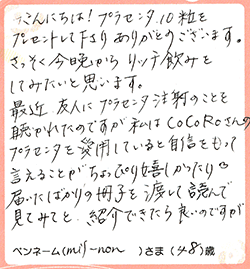 こんにちは!プラセンタ10粒を
プレゼントして下さりありがとうございます。
さっそく今晩からリッチ飲みを
してみたいと思います。
最近、友人にプラセンタ注射のことを
聴かれたのですが私はCoCoRoさんの
プラセンタを愛用していると自信をもって
言えることがちょっぴり嬉しかったり♡
届いたばかりの冊子を渡して読んで
見てみてと、紹介できたら良いのですが
ペンネーム(mis-non )さま(48)歳